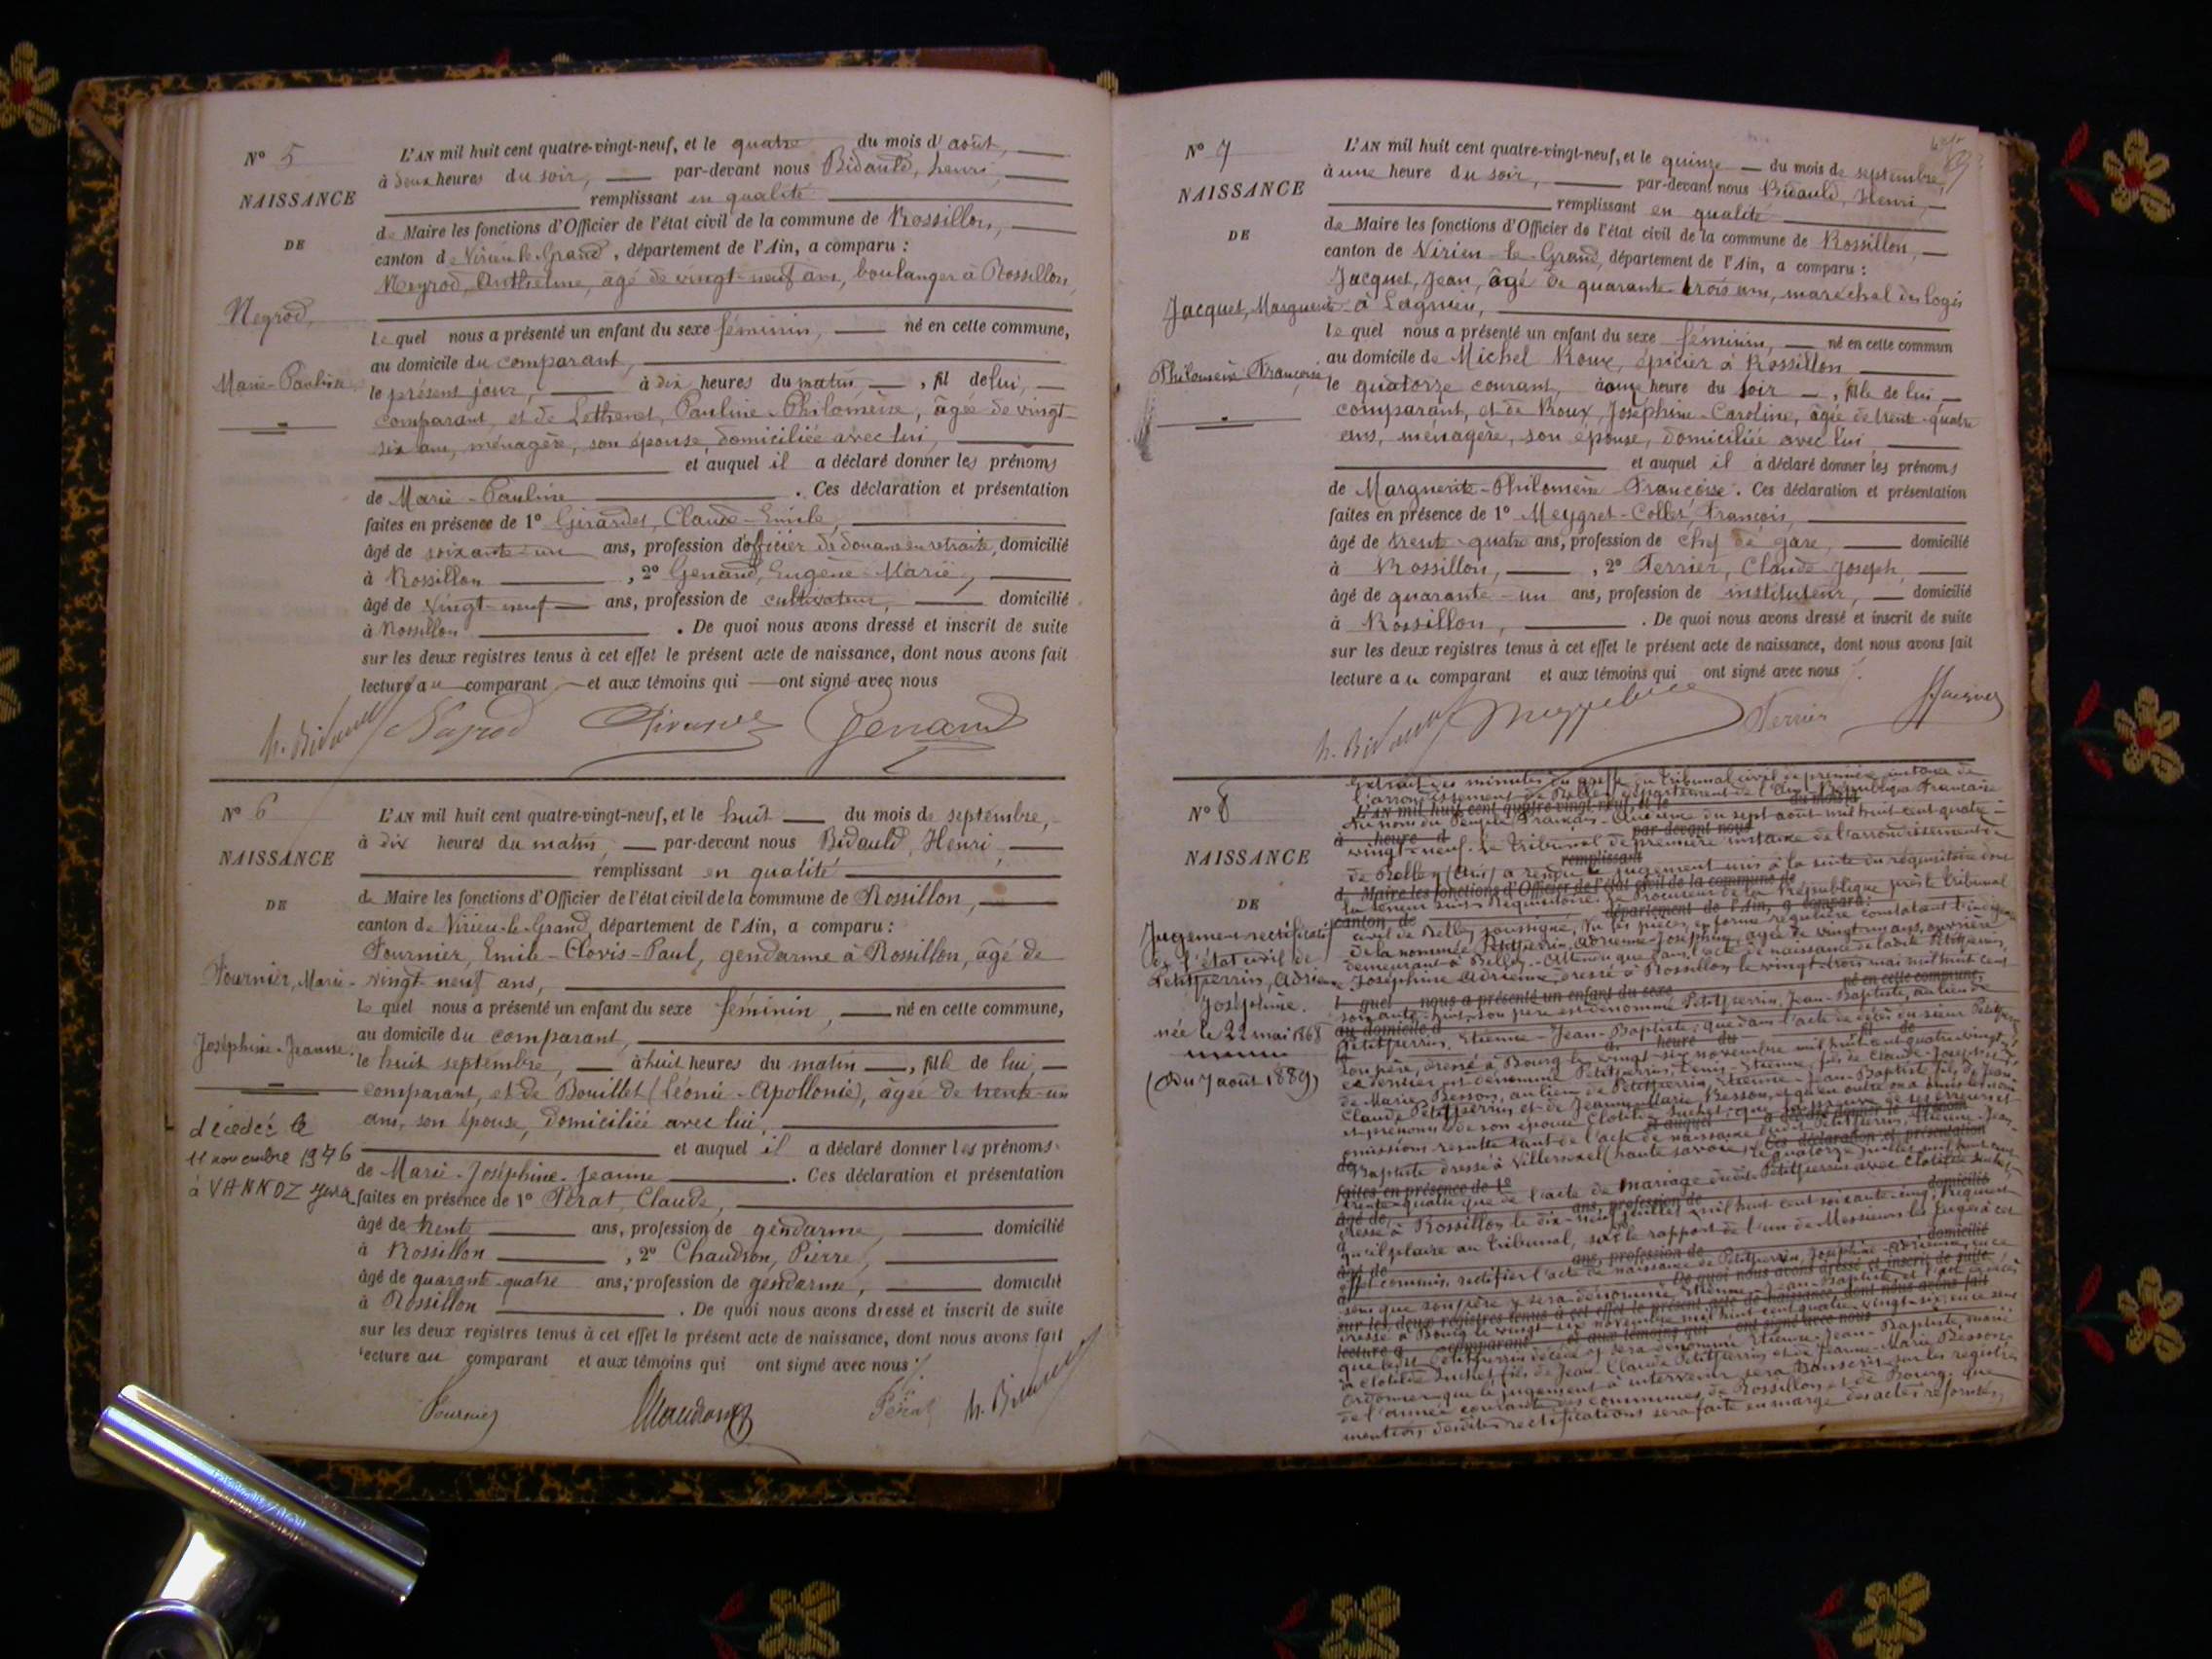 N° 5
NAISSANCE
DE
Negrod,
Marie-Pauline
L'AN mil huit cent quatre-vingt-neuf, et le quatre du mois d'août,
à deux heures du soir, par-devant nous Bidauld, henri,
remplissant en qualité
de Maire les fonctions d'Officier de l'état civil de la commune de Rossillon,
canton de Virieu-le-Grand, département de l'Ain, a comparu :
Negrod, Anthelme, âgé de vingt-neuf ans, boulanger à Rossillon,
lequel nous a présenté un enfant du sexe féminin, né en cette commune,
au domicile du comparant,
le présent jour, à dix heures du matin, fil de lui,
comparant, et de Pauline-Philomène, âgée de vingt-
six ans, ménagère, son épouse, domiciliée avec lui,
et auquel il a déclaré donner les prénoms
de Marie-Pauline. Ces déclaration et présentation
faites en présence de 1° Girardet, Claude-Emile,
âgé de soixante-un ans, profession d'officier de douane en retraite, domicilié
à Rossillon, 2° Genand, Eugène-Marie,
âgé de vingt-neuf ans, profession de cultivateur, domicilié
à Rossillon. De quoi nous avons dressé et inscrit de suite
sur les deux registres tenus à cet effet le présent acte de naissance, dont nous avons fait
lecture au comparant et aux témoins qui ont signé avec nous
h. Bidauld Negrod Girardet Genand
N° 6
NAISSANCE
DE
Fournier, Marie-
Joséphine-Jeanne.
décédée le
11 novembre 1946
à VANNOZ Jura
L'AN mil huit cent quatre-vingt-neuf, et le huit du mois de septembre,
à dix heures du matin, par-devant nous Bidauld, Henri,
remplissant en qualité
de Maire les fonctions d'Officier de l'état civil de la commune de Rossillon,
canton de Virieu-le-Grand, département de l'Ain, a comparu :
Fournier, Emile-Clovis-Paul, gendarme à Rossillon, âgé de
vingt-neuf ans,
lequel nous a présenté un enfant du sexe féminin, né en cette commune,
au domicile du comparant,
le huit septembre, à huit heures du matin, fille de lui,
comparant, et de Bouillet (Léonie-Apollonie), âgée de trente-un
ans, son épouse, domiciliée avec lui,
et auquel il a déclaré donner les prénoms
de Marie-Joséphine-Jeanne. Ces déclaration et présentation
faites en présence de 1° Pérat, Claude,
âgé de trente ans, profession de gendarme, domicilié
à Rossillon, 2° Chaudron, Pierre,
âgé de quarante-quatre ans, profession de gendarme, domicilié
à Rossillon. De quoi nous avons dressé et inscrit de suite
sur les deux registres tenus à cet effet le présent acte de naissance, dont nous avons fait
lecture au comparant et aux témoins qui ont signé avec nous
Fournier Chaudron Pérat h. Bidauld
N° 7
NAISSANCE
DE
Jacquet, Marguerite
Philomène Françoise
L'AN mil huit cent quatre-vingt-neuf, et le quinze du mois de septembre,
à une heure du soir, par-devant nous Bidauld, Henri,
remplissant en qualité
de Maire les fonctions d'Officier de l'état civil de la commune de Rossillon,
canton de Virieu-le-Grand, département de l'Ain, a comparu :
Jacquet, Jean, âgé de quarante-trois ans, maréchal des logis
à Lagnieu,
lequel nous a présenté un enfant du sexe féminin, né en cette commun
au domicile de Michel Roux, épicier à Rossillon
le quatorze courant, à heure du soir, fille de lui
comparant, et de Roux, Joséphine-Caroline, âgée de trente-quatre
ans, ménagère, son épouse, domiciliée avec lui
et auquel il a déclaré donner les prénoms
de Marguerite-Philomène Françoise. Ces déclaration et présentation
faites en présence de 1° Meygret-Collet, François,
âgé de trente-quatre ans, profession de chef de gare, domicilié
à Rossillon, 2° Ferrier, Claude Joseph,
âgé de quarante-un ans, profession de instituteur, domicilié
à Rossillon. De quoi nous avons dressé et inscrit de suite
sur les deux registres tenus à cet effet le présent acte de naissance, dont nous avons fait
lecture au comparant et aux témoins qui ont signé avec nous
h. Bidauld Ferrier Jacquet
N° 8
NAISSANCE
DE
Jugement rectificatif
de l'état civil de
Petitperrin, Adrienne
Joséphine.
née le 22 mai 1868
(Du 7 août 1889)
Extrait des minutes du greffe du tribunal civil de première instance de
l'arrondissement de Belley, département de l'Ain. République Française
Au nom du Peuple Français. Audience du sept août mil huit cent quatre-
vingt-neuf. Le Tribunal de première instance de l'arrondissement de
de Belley (Ain) a rendu le jugement mis à la suite du réquisitoire dont
la teneur suit: Réquisitoire. Le Procureur de la République près le tribunal
civil de Belley soussigné, Vu les pièces en forme régulière constatant
de la nommée Petitperrin, Adrienne-Joséphine, âgée de vingt-un ans, ouvrière
demeurant à Belley. Attendu que dans l'acte de naissance de ladite Petitperrin,
Joséphine Adrienne, dressé à Rossillon le vingt-trois mai mil huit cent
soixante-huit, son père est dénommé Petitperrin, Jean-Baptiste, au lieu de
Petitperrin, Etienne-Jean-Baptiste, que dans l'acte de décès du sieur Petitperrin
son père, dressé à Bourg le vingt-six novembre mil huit cent quatre-vingt-
ce dernier est dénommé Petitperrin, Denis-Etienne, fils de Claude-Joseph et
de Marie Besson, au lieu de Petitperrin, Etienne-Jean-Baptiste fils de Jean-
Claude Petitperrin et de Jeanne-Marie Besson, et qu'en outre on a omis les nom
et prénoms de son épouse Clotilde Suchet; que la preuve de ces erreurs et
omissions résulte tant de l'acte de naissance dudit Petitperrin, Etienne-Jean-
Baptiste dressé à Villersexel (haute savoie) le quatorze juillet mil huit cent
trente-quatre que de l'acte de mariage dudit Petitperrin avec Clotilde Suchet,
dressé à Rossillon le dix-neuf juillet mil huit cent soixante-cinq; Requiert
qu'il plaise au tribunal, sur le rapport de l'un de Messieurs les Juges à cet
effet commis, rectifier l'acte de naissance de Petitperrin, Joséphine-Adrienne, en ce
sens que son père y sera dénommé Etienne-Jean-Baptiste, et l'acte de décès
dressé à Bourg le vingt-six novembre mil huit cent quatre-vingt-six, en ce sens
que ledit Petitperrin décédé y sera dénommé Etienne-Jean-Baptiste, marié
à Clotilde Suchet, fils de Jean-Claude Petitperrin et de Jeanne-Marie Besson.
Ordonner que le jugement à intervenir sera transcrit sur les registres
de l'année courante des communes de Rossillon et de Bourg, que
mention desdites rectifications sera faite en marge des actes réformés,